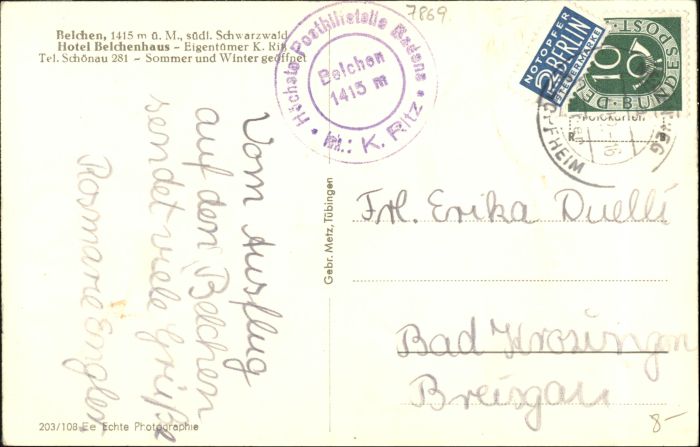 Belchen, 1415 m ü. M., südl. Schwarzwald
Hotel Belchenhaus – Eigentümer K. Riß
Tel. Schönau 281 – Sommer und Winter geöffnet
Höchste Posthilfstelle Badens
Belchen
1415 m
Inh.: K. Ritz
7869
NOTOPFER
2 BERLIN
STEUERMARKE
DEUTSCHE BUNDESPOST
10
Postkarten
HEIM
Vom Ausflug
auf den Belchen
sendet viele Grüße
Rosmarie Engler
Gebr. Metz, Tübingen
Frl. Erika Duelli
Bad Krozingen
Breisgau
203/108 Ee Echte Photographie
8-